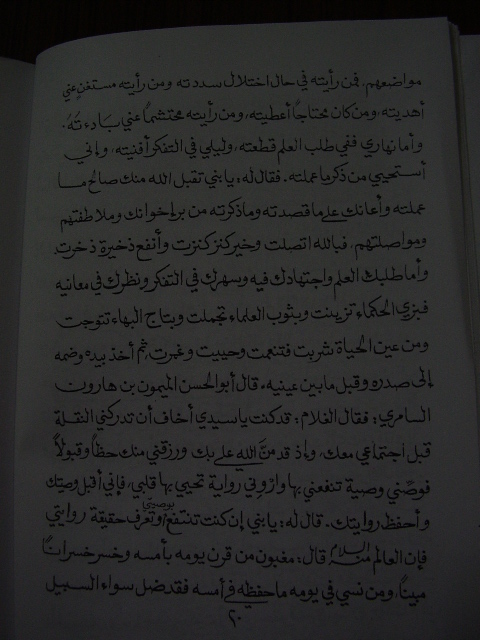 مواضعهم، فمن رأيته في حال اختلال سددته ومن رأيته مستغن عني
أهديته، ومن كان محتاجاً أعطيته، ومن رأيته محتشماً عني بادءته.
وأما نهاري ففي طلب العلم قطعته، وليلي في التفكر أفنيته، وإني
أستحيي من ذكر ما عملته. فقال له: يا بني تقبل الله منك صالح ما
عملته وأعانك على ما قصدته وما ذكرته من بر إخوانك وملاطفتهم
ومواصلتهم، فبالله اتصلت وخير كنز كنزت وأنفع ذخيرة ذخرت،
وأما طلبك العلم واجتهادك فيه وسهرك في التفكر ونظرك في معانيه
فبزي الحكماء تزينت وبثوب العلماء تجملت وبتاج البهاء تتوجت
ومن عين الحياة شربت فتنعمت وحييت وعمرت، ثم أخذ بيده وضمه
إلى صدره وقبل ما بين عينيه، قال أبو الحسن الميمون بن هارون
السامري: فقال الغلام: قد كنت يا سيدي أخاف أن تدركني النقلة
قبل اجتماعي معك، وإذ قد منّ الله علي بك ورزقني منك حظاً وقبولاً
فوصّني وصية تنفعني بها وارْوِني رواية تحيي بها قلبي، فإني أقبل وصيتك
وأحفظ روايتك. قال له: يا بني إن كنت تنتفع بوصيتي وتعرف حقيقة روايتي
فإن العالم منه السلام قال: مغبون من قرن يومه بأمسه وخسر خسراناً
مبيناً، ومن نسي في يومه ما حفظه في أمسه فقد ضل سواء السبيل
٢٠